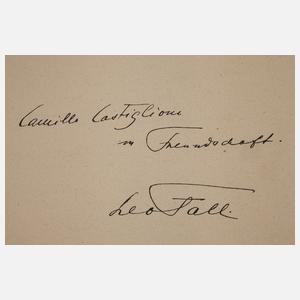 Camillo Castiglioni
in Freundschaft.
Leo Fall.